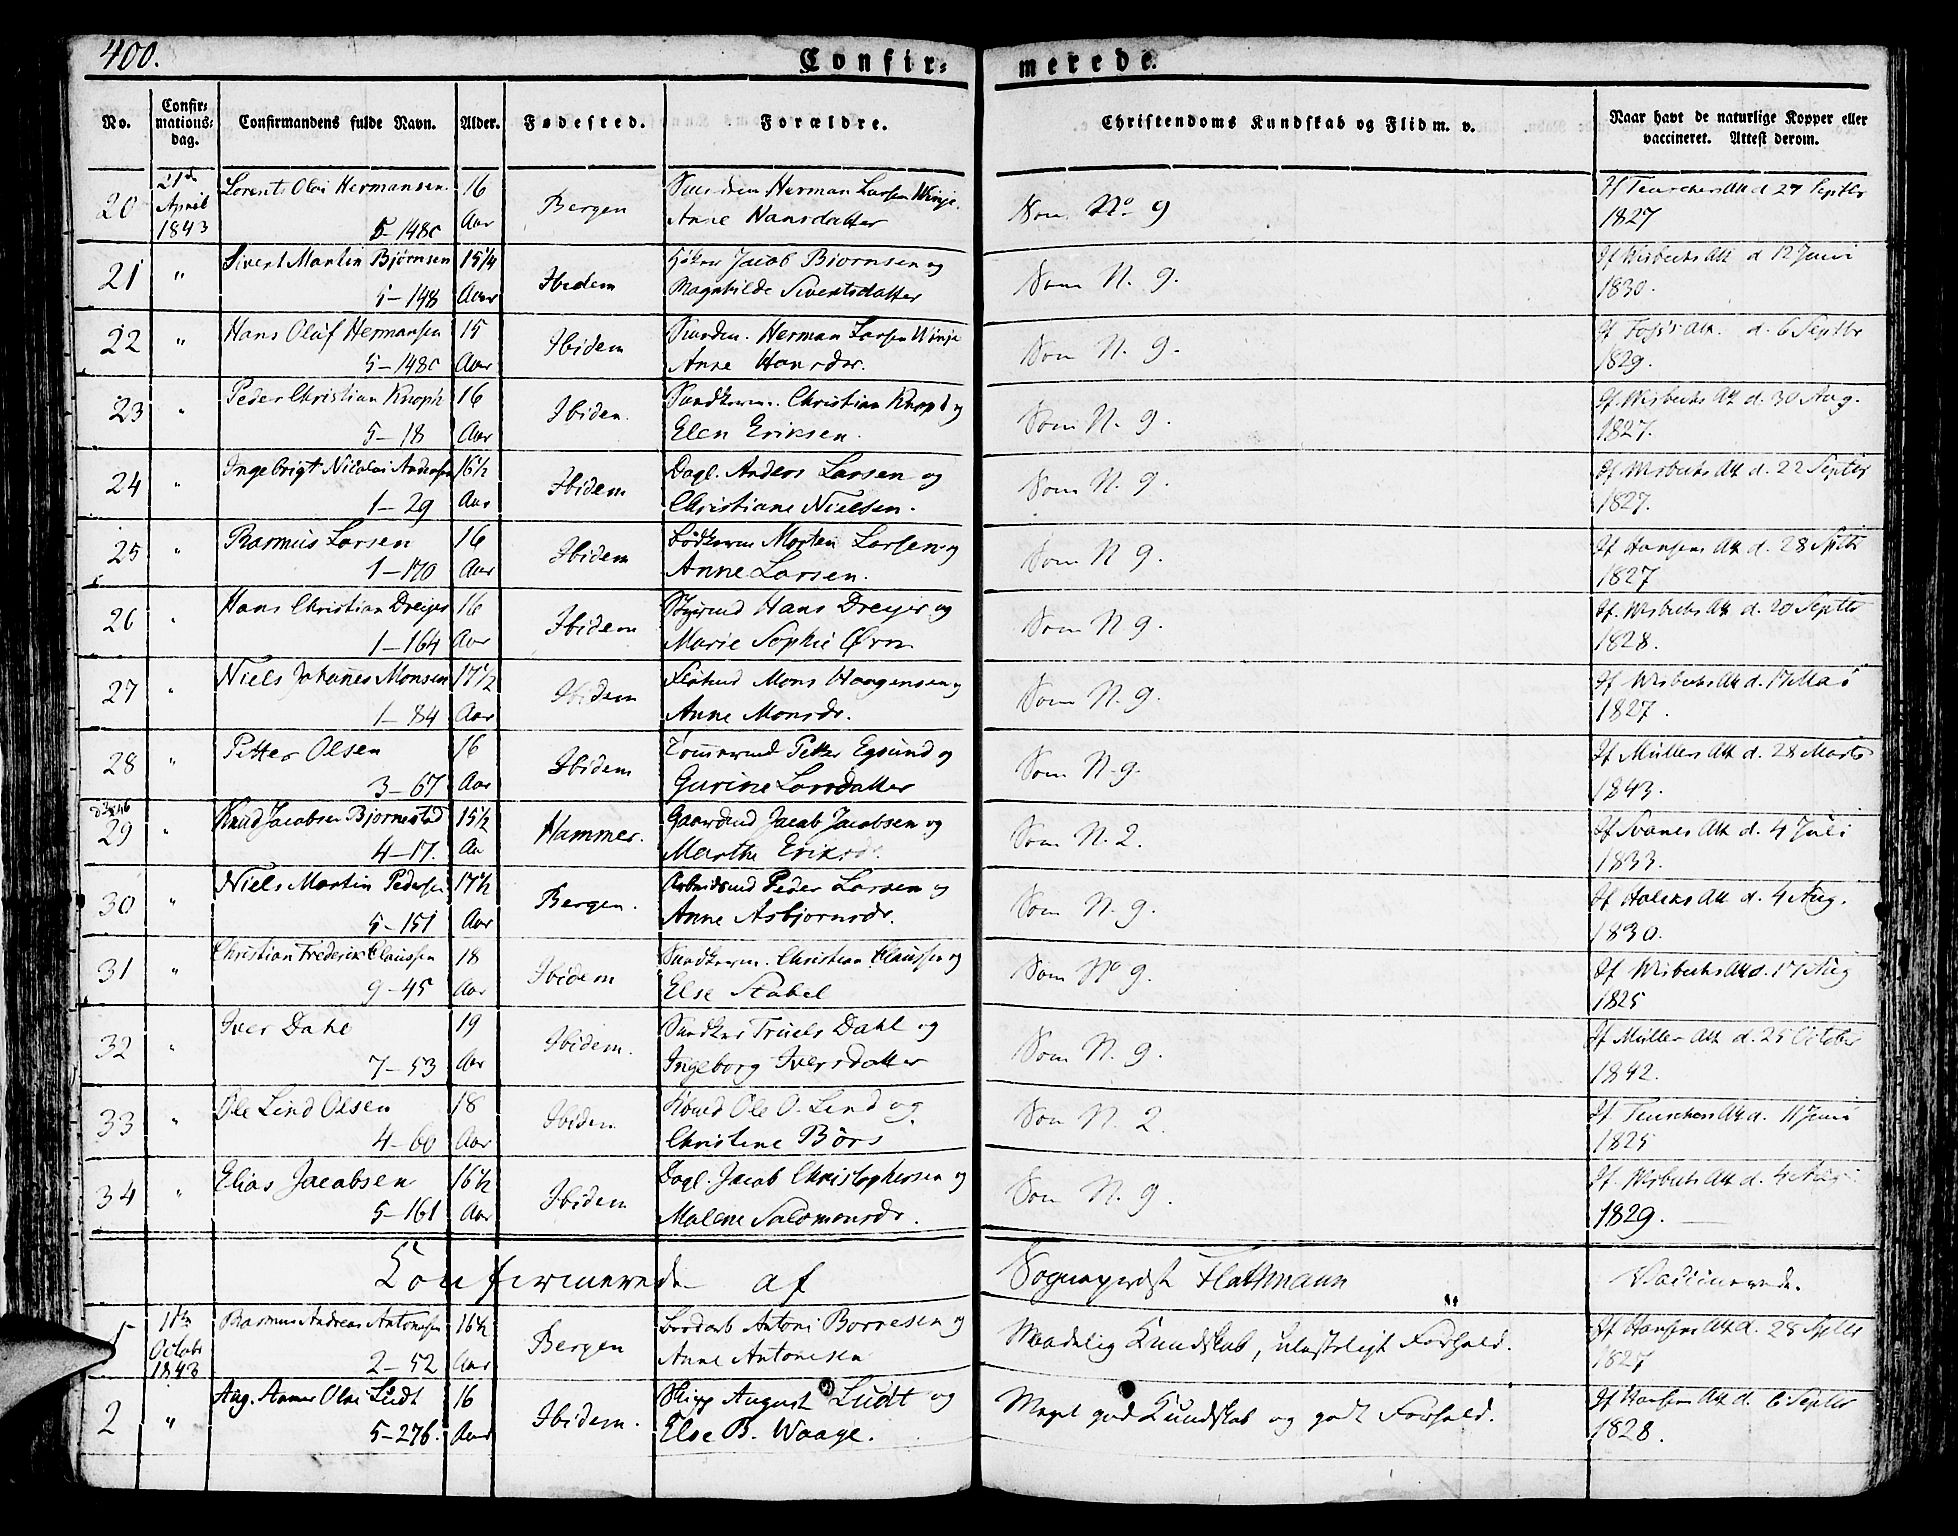 400.
Confir=
merede.
No.
Confir=
mations=
dag.
Confirmandens fulde Navn.
Alder.
Fødested.
Forældre.
Christendoms Kundskab og Flid m. v.
Naar havt de naturlige Kopper eller
vaccineret. Attest derom.
20 21de April 1843 Lorents Olai Hermansen 16 Aar Herman Larsen Winje.
5-148c Bergen Anne Hansdatter Som No. 9 If Teuschers Att d 27 Septbr 1827
21 " Sivert Martin Bjørnsen 15 1/4 Aar Jacob Bjørnsen og
5-148 Ibidem Magnhilde Sivertsdatter Som N. 9. If Wisbechs Att d 12 Juni 1830.
22 " Hans Oluf Hermansen 15 Aar Herman Larsen Winje
5-148c Ibidem Anne Hansdr. Som N. 9. If Att. d. 6 Septbr 1829.
23 " Peder Christian Knoph 16 Aar Christian Knoph og
5-18 Ibidem. Elen Eriksen. Som N. 9. If. Wisbechs Att d. 30 Aug. 1827.
24 " Ingebrigt Nicolai Andersen 16 1/2 Aar Dagl. Anders Larsen og
1-29 Ibidem Christiane Nielsen. Som N. 9. If Wisbechs Att d. 22 Septbr 1827.
25 " Rasmus Larsen 16 Aar Bødkersv. Morten Larsen og
1-170 Ibidem Anne Larsen. Som N 9. If Hansens Att d. 28 Sptbr 1827
26 " Hans Christian Dreyer 16 Aar Hans Dreyer og
1-164 Ibidem Marie Sophie Ørn Som N 9. If. Wisbechs Att d. 20 Septbr 1828.
27 " Niels Johannes Monsen 17 1/2 Aar Mons Haagensen og
1-84 Ibidem Anne Monsdr. Som N. 9. If Wisbechs Att d. 17 Mai 1827.
28 " Petter Olsen 16 Aar Petter Egsund og
3-67 Ibidem Gurine Larsdatter Som N. 9. If Müllers Att d. 28 Marts 1843.
29 " Knud Jacobsen Bjørnestad 15 1/2 Aar Gaardmd Jacob Jacobsen og
4-17. Hammer. Marthe Eriksdr. Som N. 2. If Svanes Att d. 4 Juli 1833.
30 " Niels Martin Pedersen 17 1/2 Aar Arbeidsmd Peder Larsen og
5-151 Bergen. Anne Asbjørnsdr. Som N. 9. If Holcks Att d. 4 Aug. 1830.
31 " Christian Frederik Claussen 18 Aar Christian Claussen og
9-45 Ibidem Else Stabel Som No 9. If Wisbechs Att d. 17 Aug 1825
32 " Iver Dahl 19 Aar Truels Dahl og
7-53 Ibidem. Ingeborg Iversdatter Som N. 9. If Müller Att d. 25 October 1842.
33 " Ole Lind Olsen 18 Aar Ole O. Lind og
4-60 Ibidem Christine Børs Som N. 2. If. Teuschers Att d. 11 Juni 1825
34 " Elias Jacobsen 16 1/2 Aar Dagl. Jacob Christophersen og
5-161 Ibidem Malene Salomonsdr. Som N. 9. If. Wisbechs Att d. 4 1829.
Confirmerede af Sognepræst Flottmann Vaccinerede.
1 1ste Octobr 1843 Rasmus Andreas Antonesen 16 1/2 Aar Antoni Borresen og
2-52 Bergen Anne Antonesen Maadelig Kundskab, ulasteligt Forhold. If Hansens Att d. 28 Sptbr 1827
2 " Aug. Olai Lüdt 16 Aar Skipp August Lüdt og
5-276. Ibidem. Else B. Waage. Meget god Kundskab og godt Forhold. If Hansen Att d. 6 Septbr 1828.